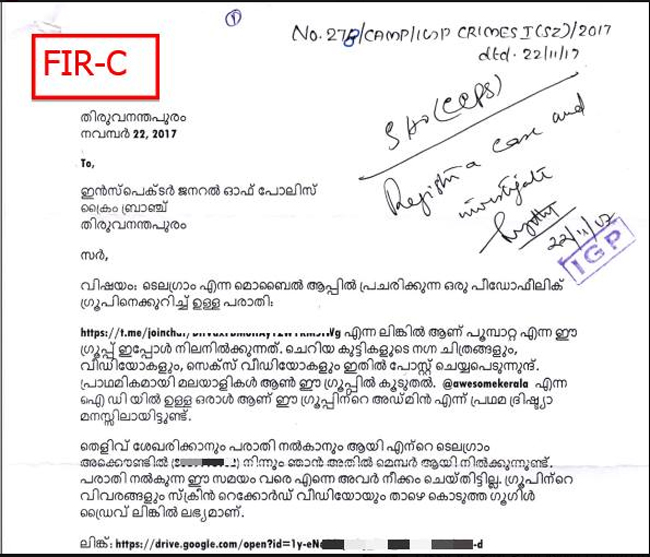 1
No. 278/CAMP/IGP CRIMES I(SZ)/2017
dtd. 22/11/17
FIR-C
SHO (CCPS)
Register a case and
investigate
22/11/17
IGP
തിരുവനന്തപുരം
നവമ്പർ 22, 2017
To,
ഇൻസ്പെക്ടർ ജനറൽ ഓഫ് പോലിസ്
ക്രൈം ബ്രാഞ്ച്
തിരുവനന്തപുരം
സർ,
വിഷയം: ടെലഗ്രാം എന്ന മൊബൈൽ ആപ്പിൽ പ്രചരിക്കുന്ന ഒരു പീഡോഫീലിക്
ഗ്രൂപിനെക്കുറിച്ച് ഉള്ള പരാതി:
എന്ന ലിങ്കിൽ ആണ് പൂമ്പാറ്റ എന്ന ഈ
ഗ്രൂപ്പ് ഇപ്പോൾ നിലനിൽക്കുന്നത്. ചെറിയ കുട്ടികളുടെ നഗ്ന ചിത്രങ്ങളും,
വീഡിയോകളും, സെക്സ് വീഡിയോകളും ഇതിൽ പോസ്റ്റ് ചെയ്യപെടുന്നുന്ദ്.
പ്രാഥമികമായി മലയാളികൾ ആൺ ഈ ഗ്രൂപ്പിൽ കൂടുതൽ. @awesomekerala എന്ന
ഐ ഡി യിൽ ഉള്ള ഒരാൾ ആണ് ഈ ഗ്രൂപിൻറെ അഡ്മിൻ എന്ന് പ്രഥമ ദ്രിഷ്ട്യാ
മനസ്സിലായിട്ടുണ്ട്.
തെളിവ് ശേഖരിക്കാനും പരാതി നൽകാനും ആയി എൻറെ ടെലഗ്രാം
അക്കൌണ്ടിൽ നിന്നും ഞാൻ അതിൽ മെമ്പർ ആയി നിൽക്കുന്നുണ്ട്.
പരാതി നൽകുന്ന ഈ സമയം വരെ എന്നെ അവർ നീക്കം ചെയ്തിട്ടില്ല. ഗ്രൂപിൻറെ
വിവരങ്ങളും സ്ക്രീൻ റെക്കോർഡ് വീഡിയോയും താഴെ കൊടുത്ത ഗൂഗിൾ
ഡ്രൈവ് ലിങ്കിൽ ലഭ്യമാണ്.
ലിങ്ക്: